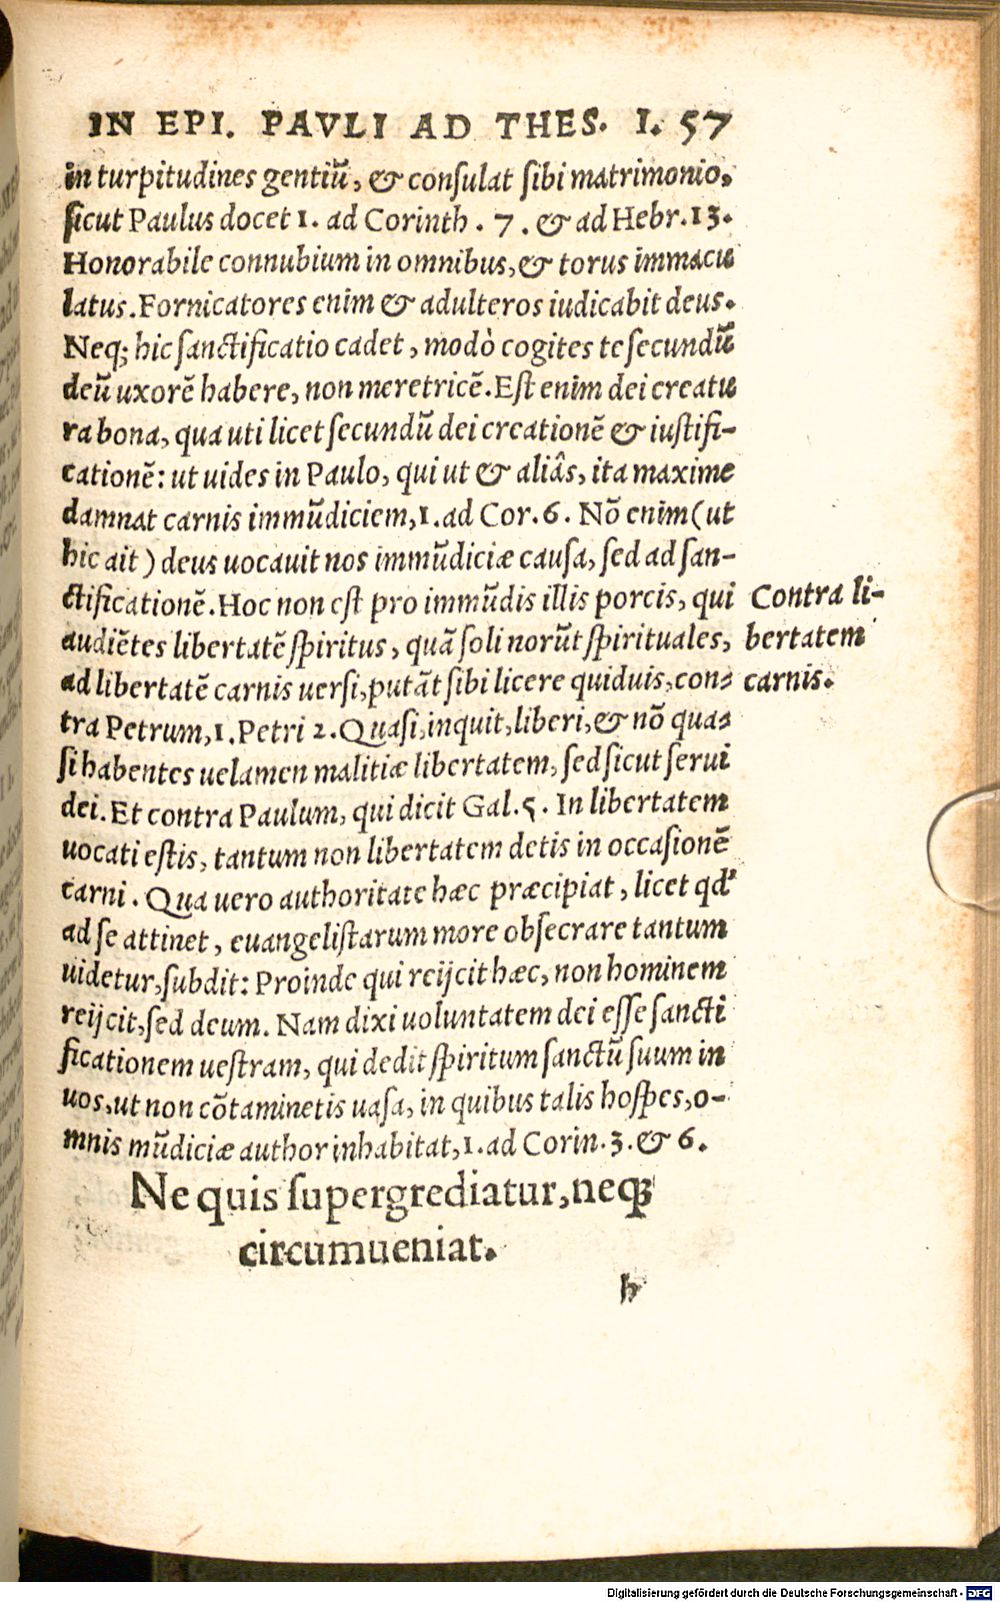 IN EPI. PAVLI AD THES. I. 57
in turpitudines gentiũ, & consulat sibi matrimonio,
sicut Paulus docet 1. ad Corinth. 7. & ad Hebr. 13.
Honorabile connubium in omnibus, & torus immacu
latus. Fornicatores enim & adulteros iudicabit deus.
Neq; hic sanctificatio cadet, modò cogites te secundũ
deũ uxorẽ habere, non meretricẽ. Est enim dei creatu
ra bona, qua uti licet secundũ dei creationẽ & iustifi-
cationẽ: ut uides in Paulo, qui ut & aliâs, ita maxime
damnat carnis immũdiciem, 1. ad Cor. 6. Nõ enim (ut
hic ait) deus uocauit nos immũdiciæ causa, sed ad san-
ctificationẽ. Hoc non est pro immũdis illis porcis, qui
Contra li-
audiẽtes libertatẽ spiritus, quã soli norũt spirituales,
bertatem
ad libertatẽ carnis uersi, putãt sibi licere quiduis, con-
carnis.
tra Petrum, 1. Petri 2. Quasi, inquit, liberi, & nõ qua-
si habentes uelamen malitiæ libertatem, sed sicut serui
dei. Et contra Paulum, qui dicit Gal. 5. In libertatem
uocati estis, tantum non libertatem detis in occasionẽ
carni. Qua uero authoritate hæc præcipiat, licet qd'
ad se attinet, euangelistarum more obsecrare tantum
uidetur, subdit: Proinde qui reijcit hæc, non hominem
reijcit, sed deum. Nam dixi uoluntatem dei esse sancti
ficationem uestram, qui dedit spiritum sanctũ suum in
uos, ut non cõtaminetis uasa, in quibus talis hospes, o-
mnis mũdiciæ author inhabitat, 1. ad Corin. 3. & 6.
Ne quis supergrediatur, neq;
circumueniat.
h
Digitalisierung gefördert durch die Deutsche Forschungsgemeinschaft - DFG